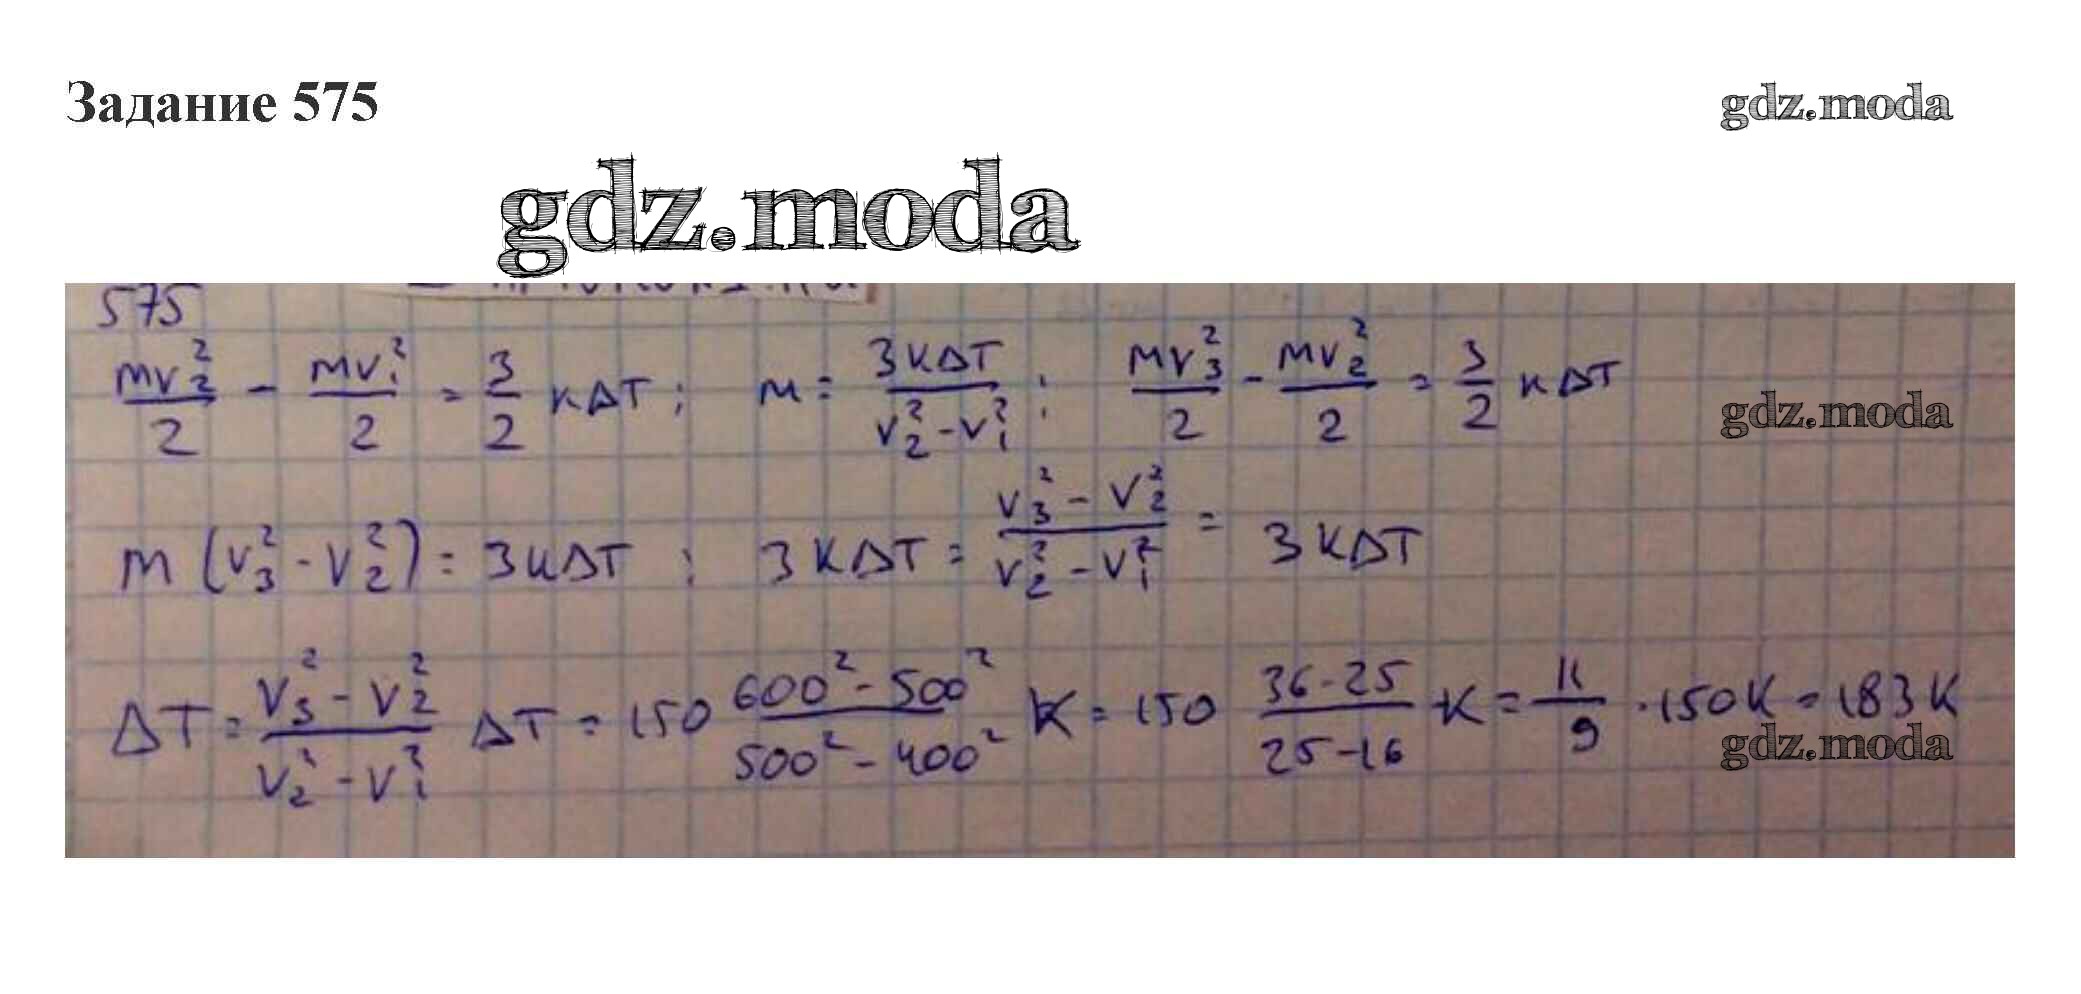 Задание 575
gdz.moda
gdz.moda
575
mv₂²/2 - mv₁²/2 = 3/2 кΔT; m = 3кΔT/(v₂² - v₁²); mv₃²/2 - mv₂²/2 = 3/2 кΔT
gdz.moda
m(v₃² - v₂²) = 3кΔT; 3кΔT = (v₃² - v₂²)/(v₂² - v₁²) = 3кΔT
ΔT = (v₃² - v₂²)/(v₂² - v₁²) ΔT = 150 (600² - 500²)/(500² - 400²) К = 150 (36 - 25)/(25 - 16) К = 11/9 · 150К = 183К
gdz.moda